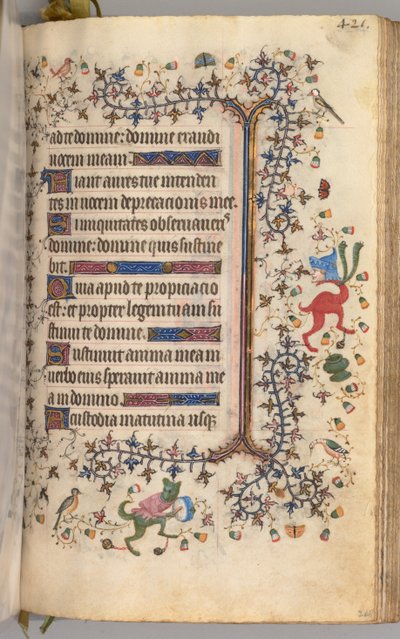 421.
ad te domine: domine exaudi
uocem meam
Fiant aures tue intenden
tes in uocem deprecationis mee.
Si iniquitates obseruauerˢ
domine: domine quis sustine
bit.
Quia apud te propiciacio
est: et propter legem tuam su
stinui te domine.
Sustinuit anima mea in
uerbo eius sperauit anima me
a in domino
A custodia matutina usqꝫ